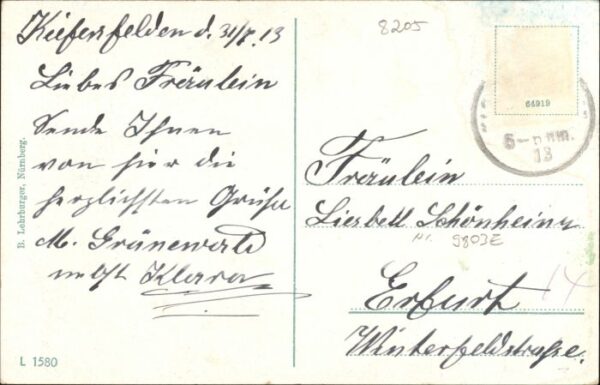 Kiefersfelden d. 31/7.13
Liebes Fräulein
Sende Ihnen
von hier die
herzlichsten Grüße
M. Grünewald
nebst Klara
B. Lehrburger, Nürnberg.
L 1580
8205
64919
6-7 Nm.
13
Fräulein
Liesbett Schönheinz
9803E
Erfurt
14
Winterfeldstraße.